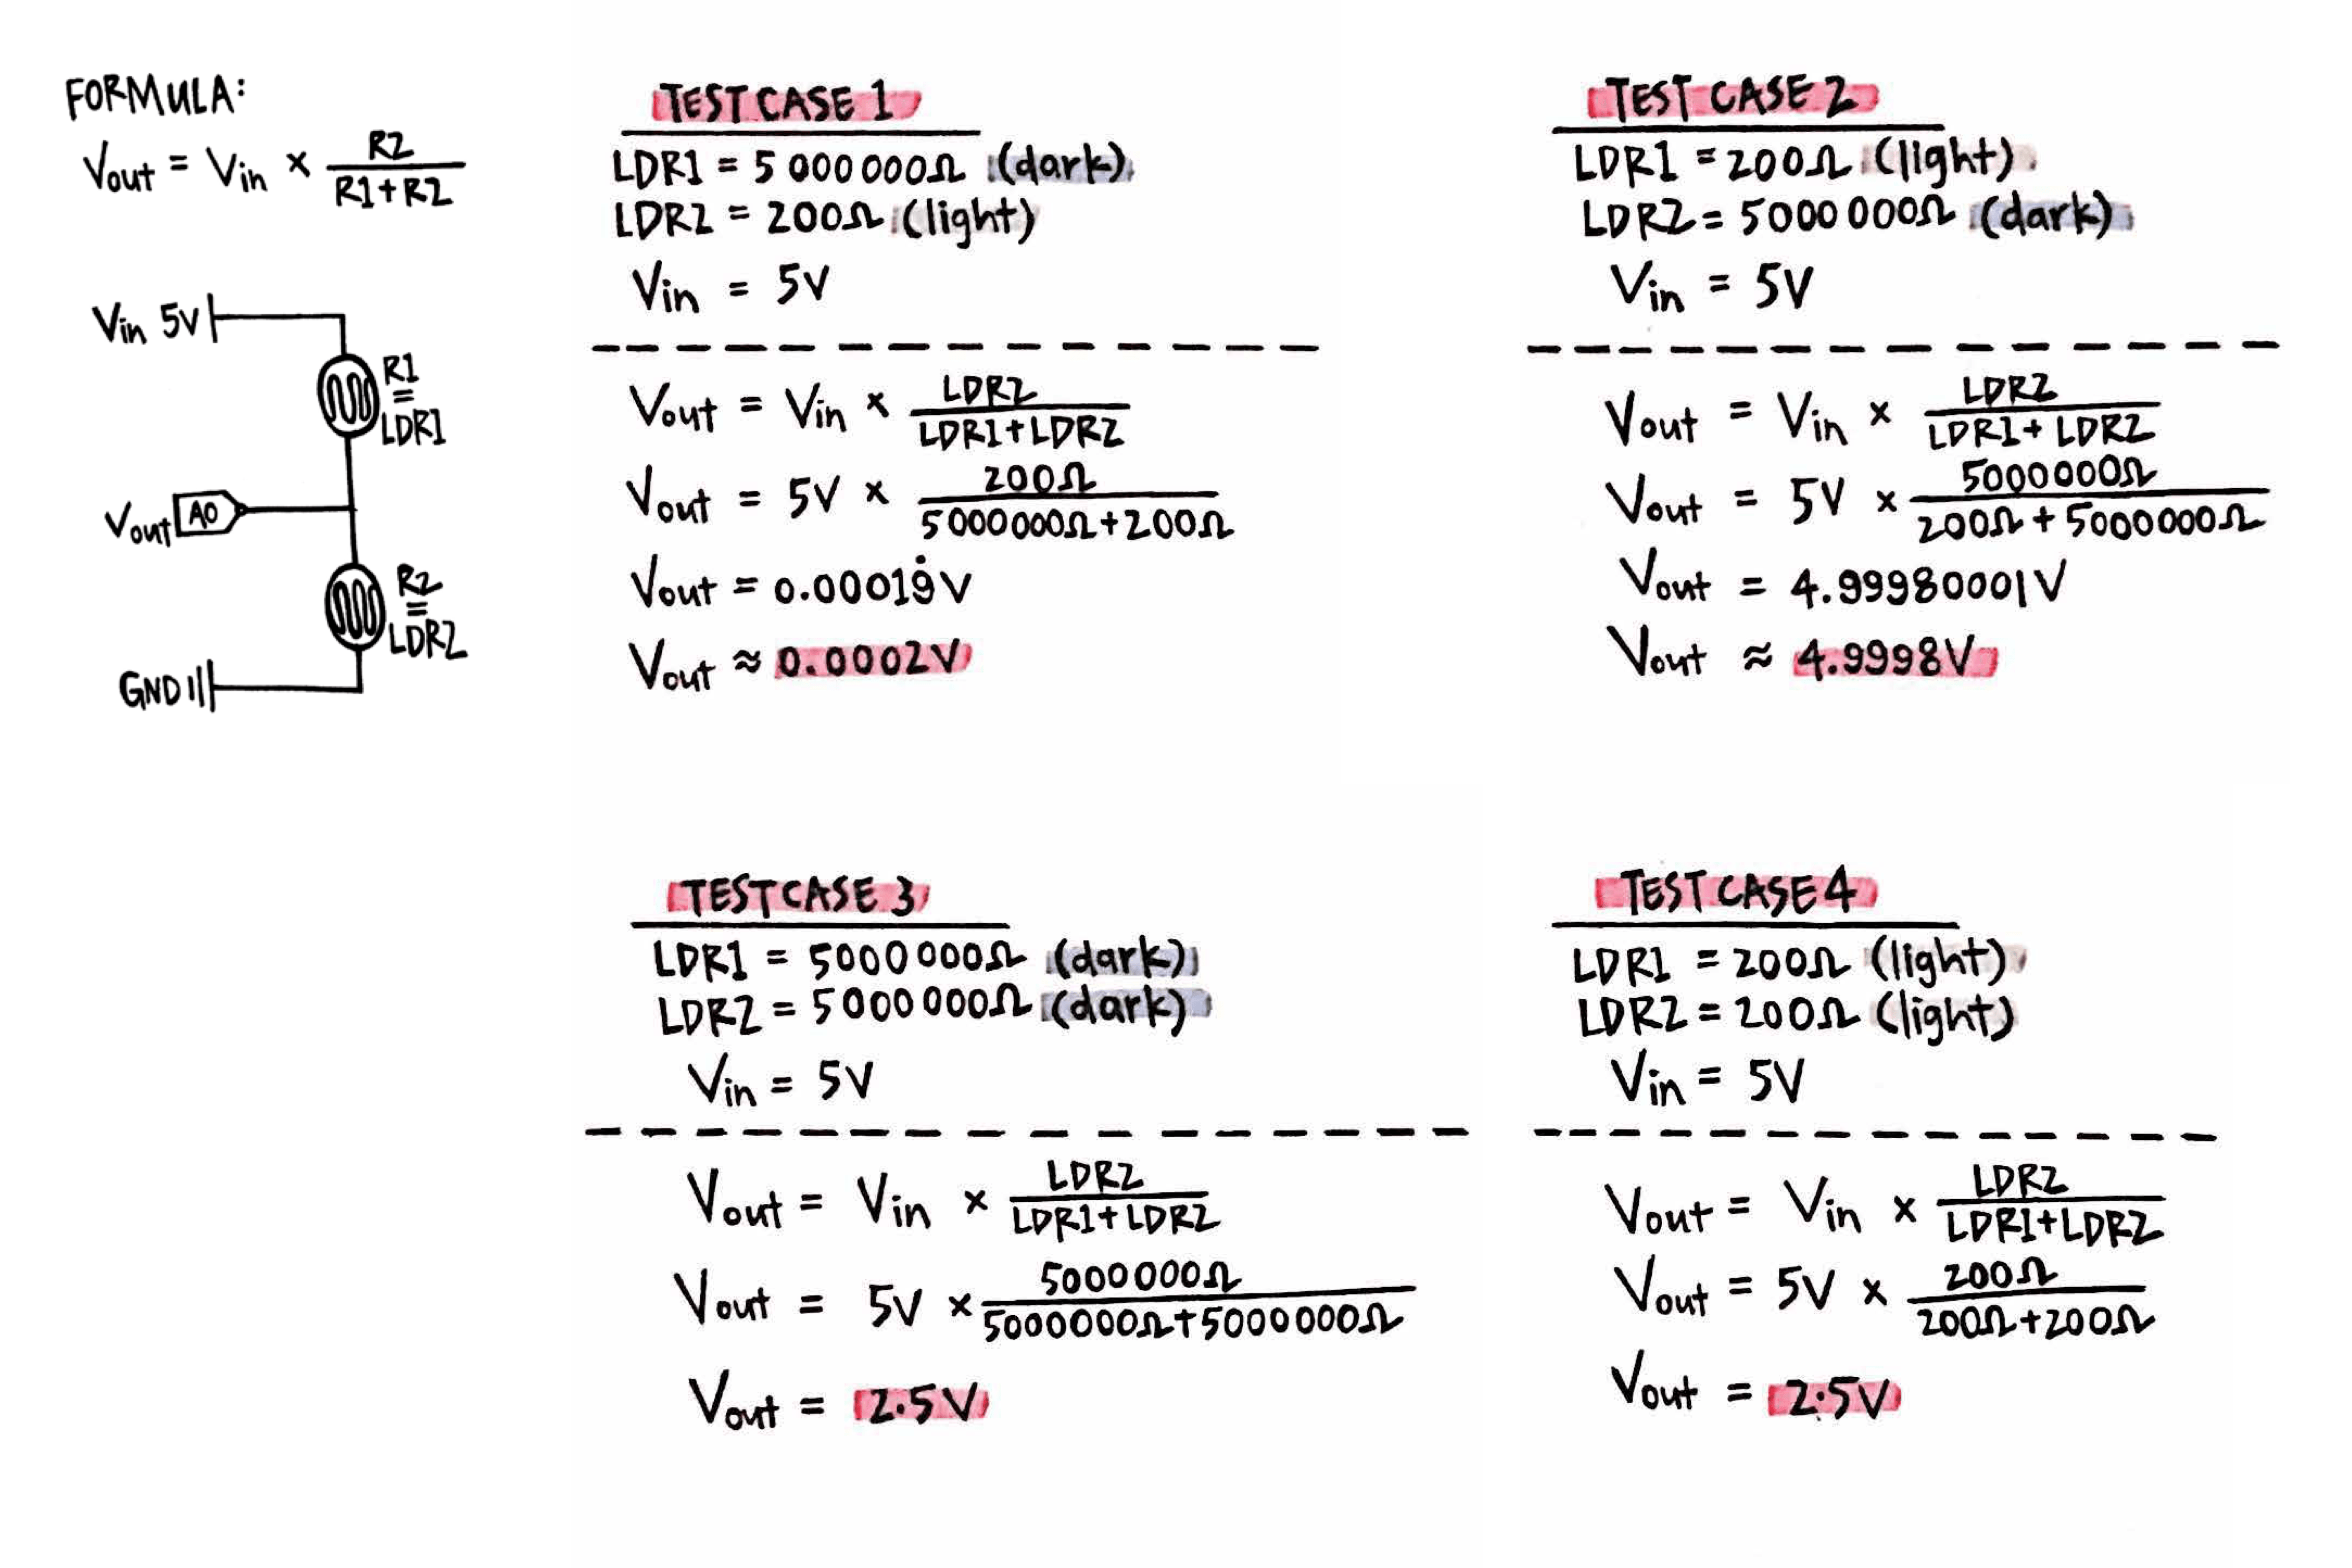 FORMULA:
Vout = Vin × R2 / R1+R2
Vin 5V
R1
=
LDR1
Vout A0
R2
=
LDR2
GND
TEST CASE 1
LDR1 = 5 000 000Ω (dark)
LDR2 = 200Ω (light)
Vin = 5V
Vout = Vin × LDR2 / LDR1+LDR2
Vout = 5V × 200Ω / 5000000Ω+200Ω
Vout = 0.00019̇V
Vout ≈ 0.0002V
TEST CASE 2
LDR1 = 200Ω (light)
LDR2 = 5000 000Ω (dark)
Vin = 5V
Vout = Vin × LDR2 / LDR1+LDR2
Vout = 5V × 5000000Ω / 200Ω+5000000Ω
Vout = 4.99980001V
Vout ≈ 4.9998V
TEST CASE 3
LDR1 = 5000 000Ω (dark)
LDR2 = 5000 000Ω (dark)
Vin = 5V
Vout = Vin × LDR2 / LDR1+LDR2
Vout = 5V × 5000000Ω / 5000000Ω+5000000Ω
Vout = 2.5V
TEST CASE 4
LDR1 = 200Ω (light)
LDR2 = 200Ω (light)
Vin = 5V
Vout = Vin × LDR2 / LDR1+LDR2
Vout = 5V × 200Ω / 200Ω+200Ω
Vout = 2.5V